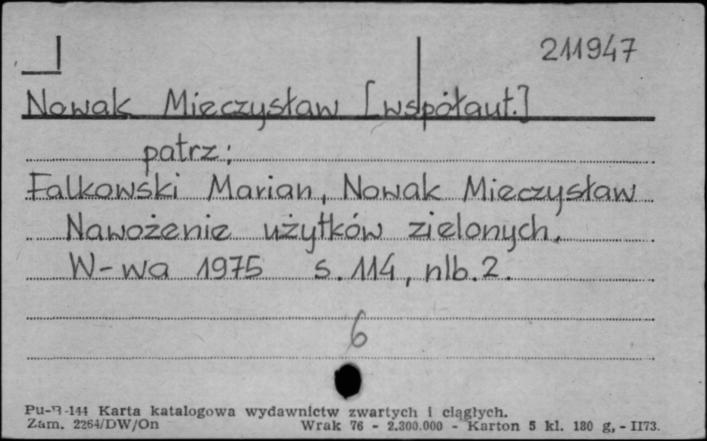 211947
Nowak Mieczysław [współaut.]
patrz:
Falkowski Marian, Nowak Mieczysław
Nawożenie użytków zielonych.
W-wa 1975 s. 114, nlb. 2.
6
Pu-B-144 Karta katalogowa wydawnictw zwartych i ciągłych.
Zam. 2264/DW/On Wrak 76 - 2.300.000 - Karton 5 kl. 180 g, - II73.